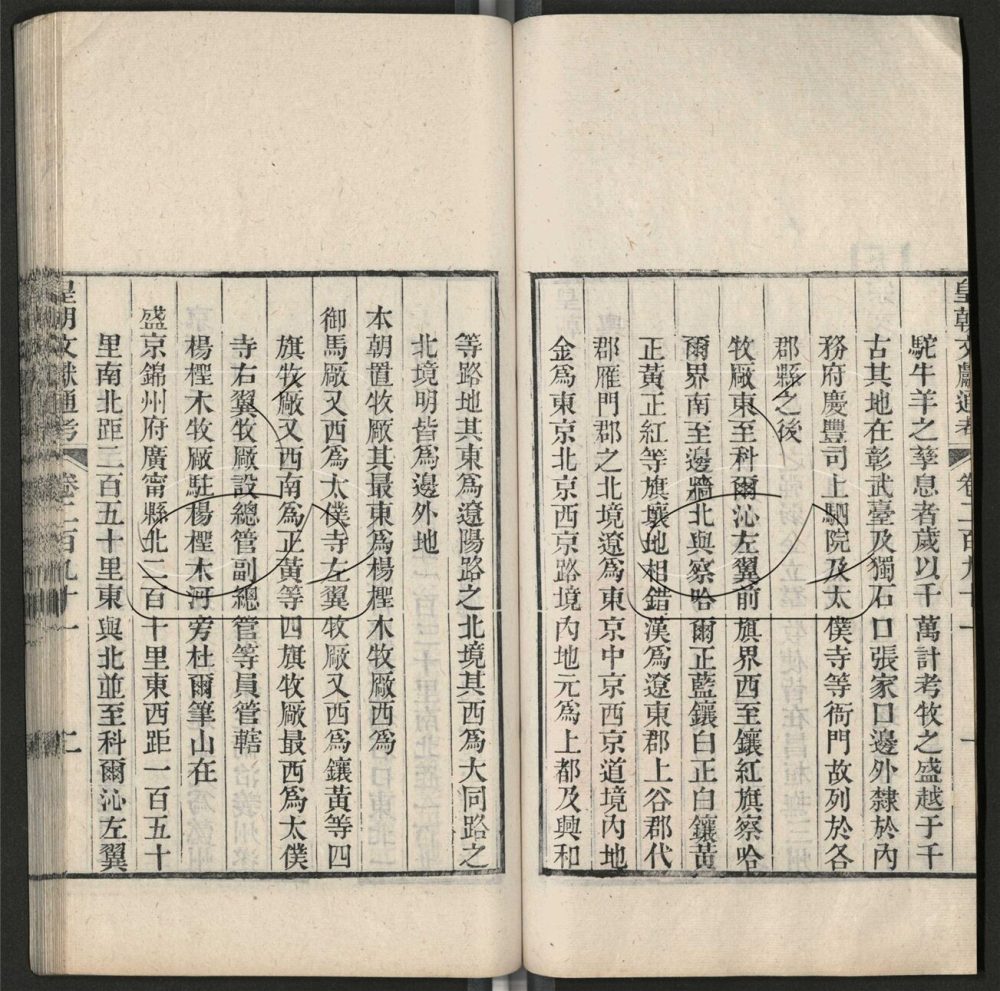 皇朝文獻通考 卷二百九十一 一
駝牛羊之孳息者歲以千萬計考牧之盛越于千
古其地在彰武臺及獨石口張家口邊外隸於內
務府慶豐司上駟院及太僕寺等衙門故列於各
郡縣之後
牧厰東至科爾沁左翼前旗界西至鑲紅旗察哈
爾界南至邊牆北與察哈爾正藍鑲白正白鑲黃
正黃正紅等旗壤地相錯漢為遼東郡上谷郡代
郡雁門郡之北境遼為東京中京西京道境內地
金為東京北京西京路境內地元為上都及興和
等路地其東為遼陽路之北境其西為大同路之
北境明皆為邊外地
本朝置牧厰其最東為楊檉木牧厰西為
御馬厰又西為太僕寺左翼牧厰又西為鑲黃等四
旗牧厰又西南為正黃等四旗牧厰最西為太僕
寺右翼牧厰設總管副總管等員管轄
楊檉木牧厰駐楊檉木河旁杜爾筆山在
盛京錦州府廣甯縣北二百十里東西距一百五十
里南北距二百五十里東與北並至科爾沁左翼
皇朝文獻通考 卷二百九十一 二